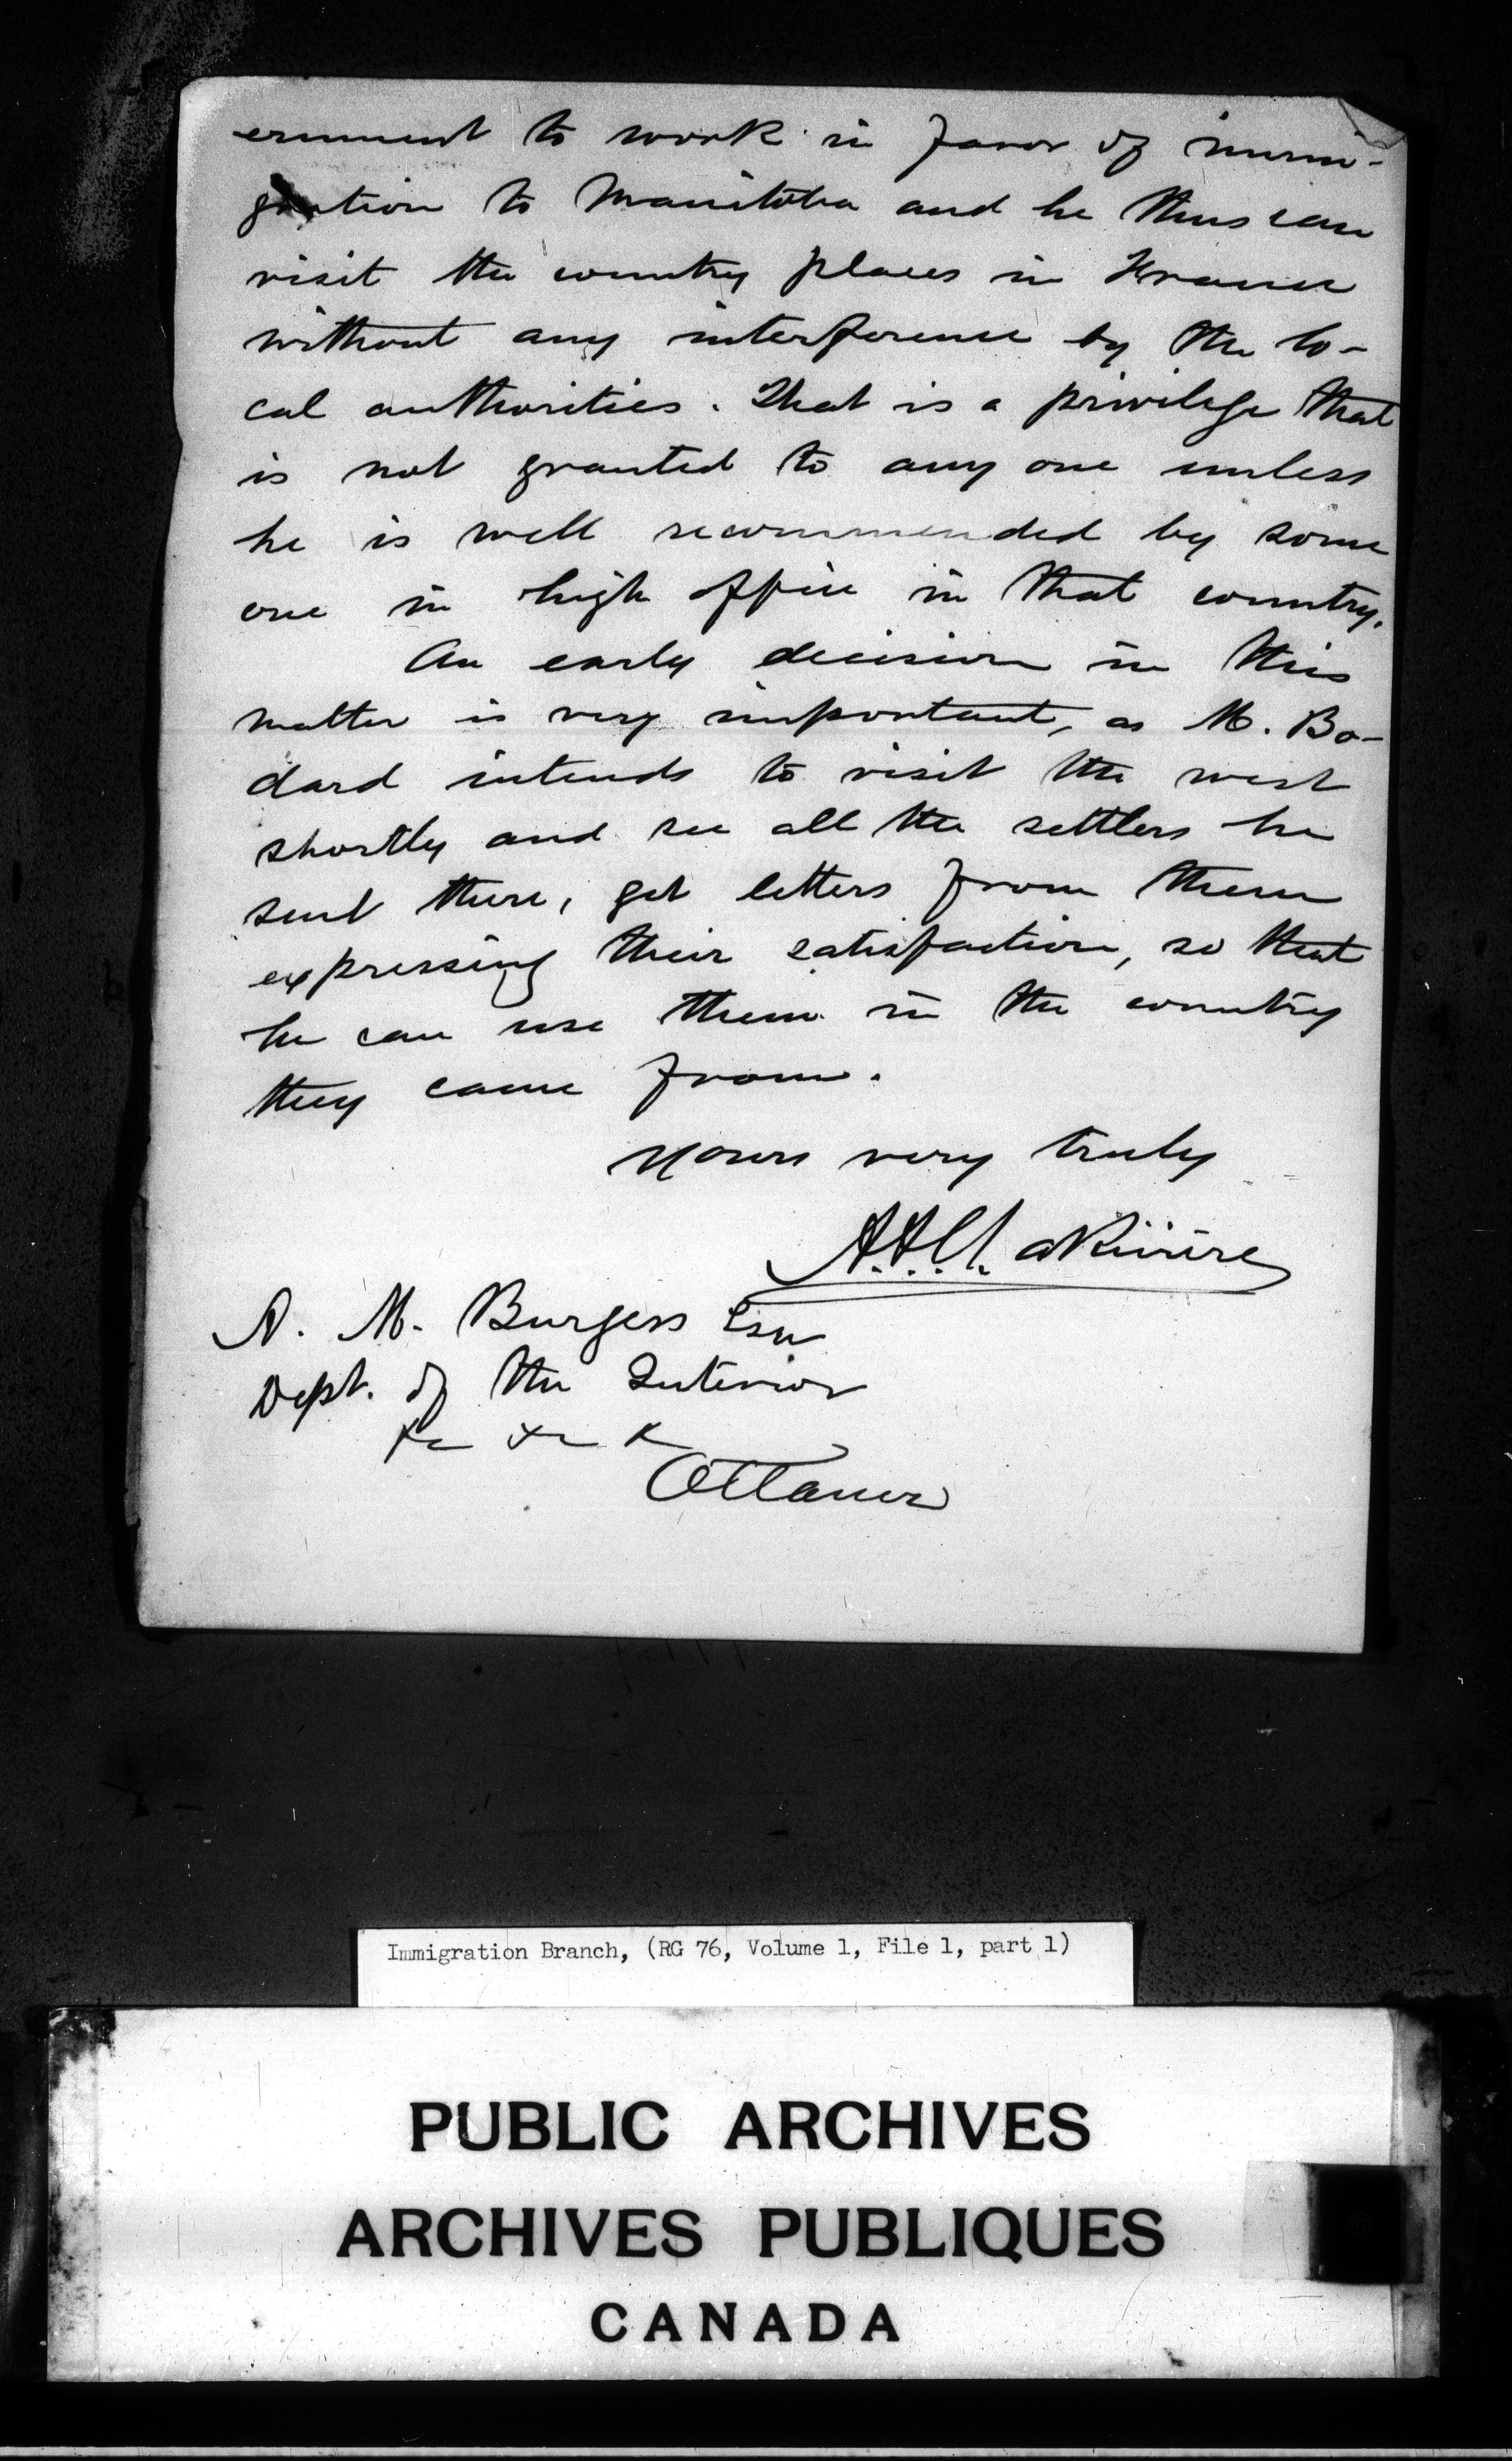 ernment to work in favor of immi-
gration to Manitoba and he thus can
visit the country places in France
without any interference by the lo-
cal authorities. That is a privilege that
is not granted to any one unless
he is well recommended by some
one in high office in that country.
An early decision in this
matter is very important, as M. Bo-
dard intends to visit the west
shortly and see all the settlers he
sent there, get letters from them
expressing their satisfaction, so that
he can use them in the country
they came from.
Yours very truly
A.A.C. LaRivière
A. M. Burgess Esq
Dept. of the Interior
&c &c &c
Ottawa
Immigration Branch, (RG 76, Volume 1, File 1, part 1)
PUBLIC ARCHIVES
ARCHIVES PUBLIQUES
CANADA